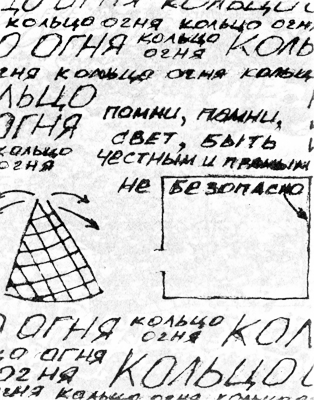 КОЛЬЦО ОГНЯ КОЛЬЦО ОГНЯ
ОГНЯ КОЛЬЦО
ОГНЯ
КОЛЬ
ОГНЯ КОЛЬЦО ОГНЯ КОЛЬЦ
ЛЬЦО
ОГНЯ
КОЛЬЦО
ОГНЯ
ПОМНИ, ПОМНИ,
СВЕТ, БЫТЬ
ЧЕСТНЫМ И ПРЯМЫМ
НЕ БЕЗОПАСНО
ОГНЯ КОЛЬЦО
ОГНЯ
КОЛ
ЦО ОГНЯ
ОГНЯ КОЛЬЦО
ОГНЯ КОЛЬЦО ОГНЯ